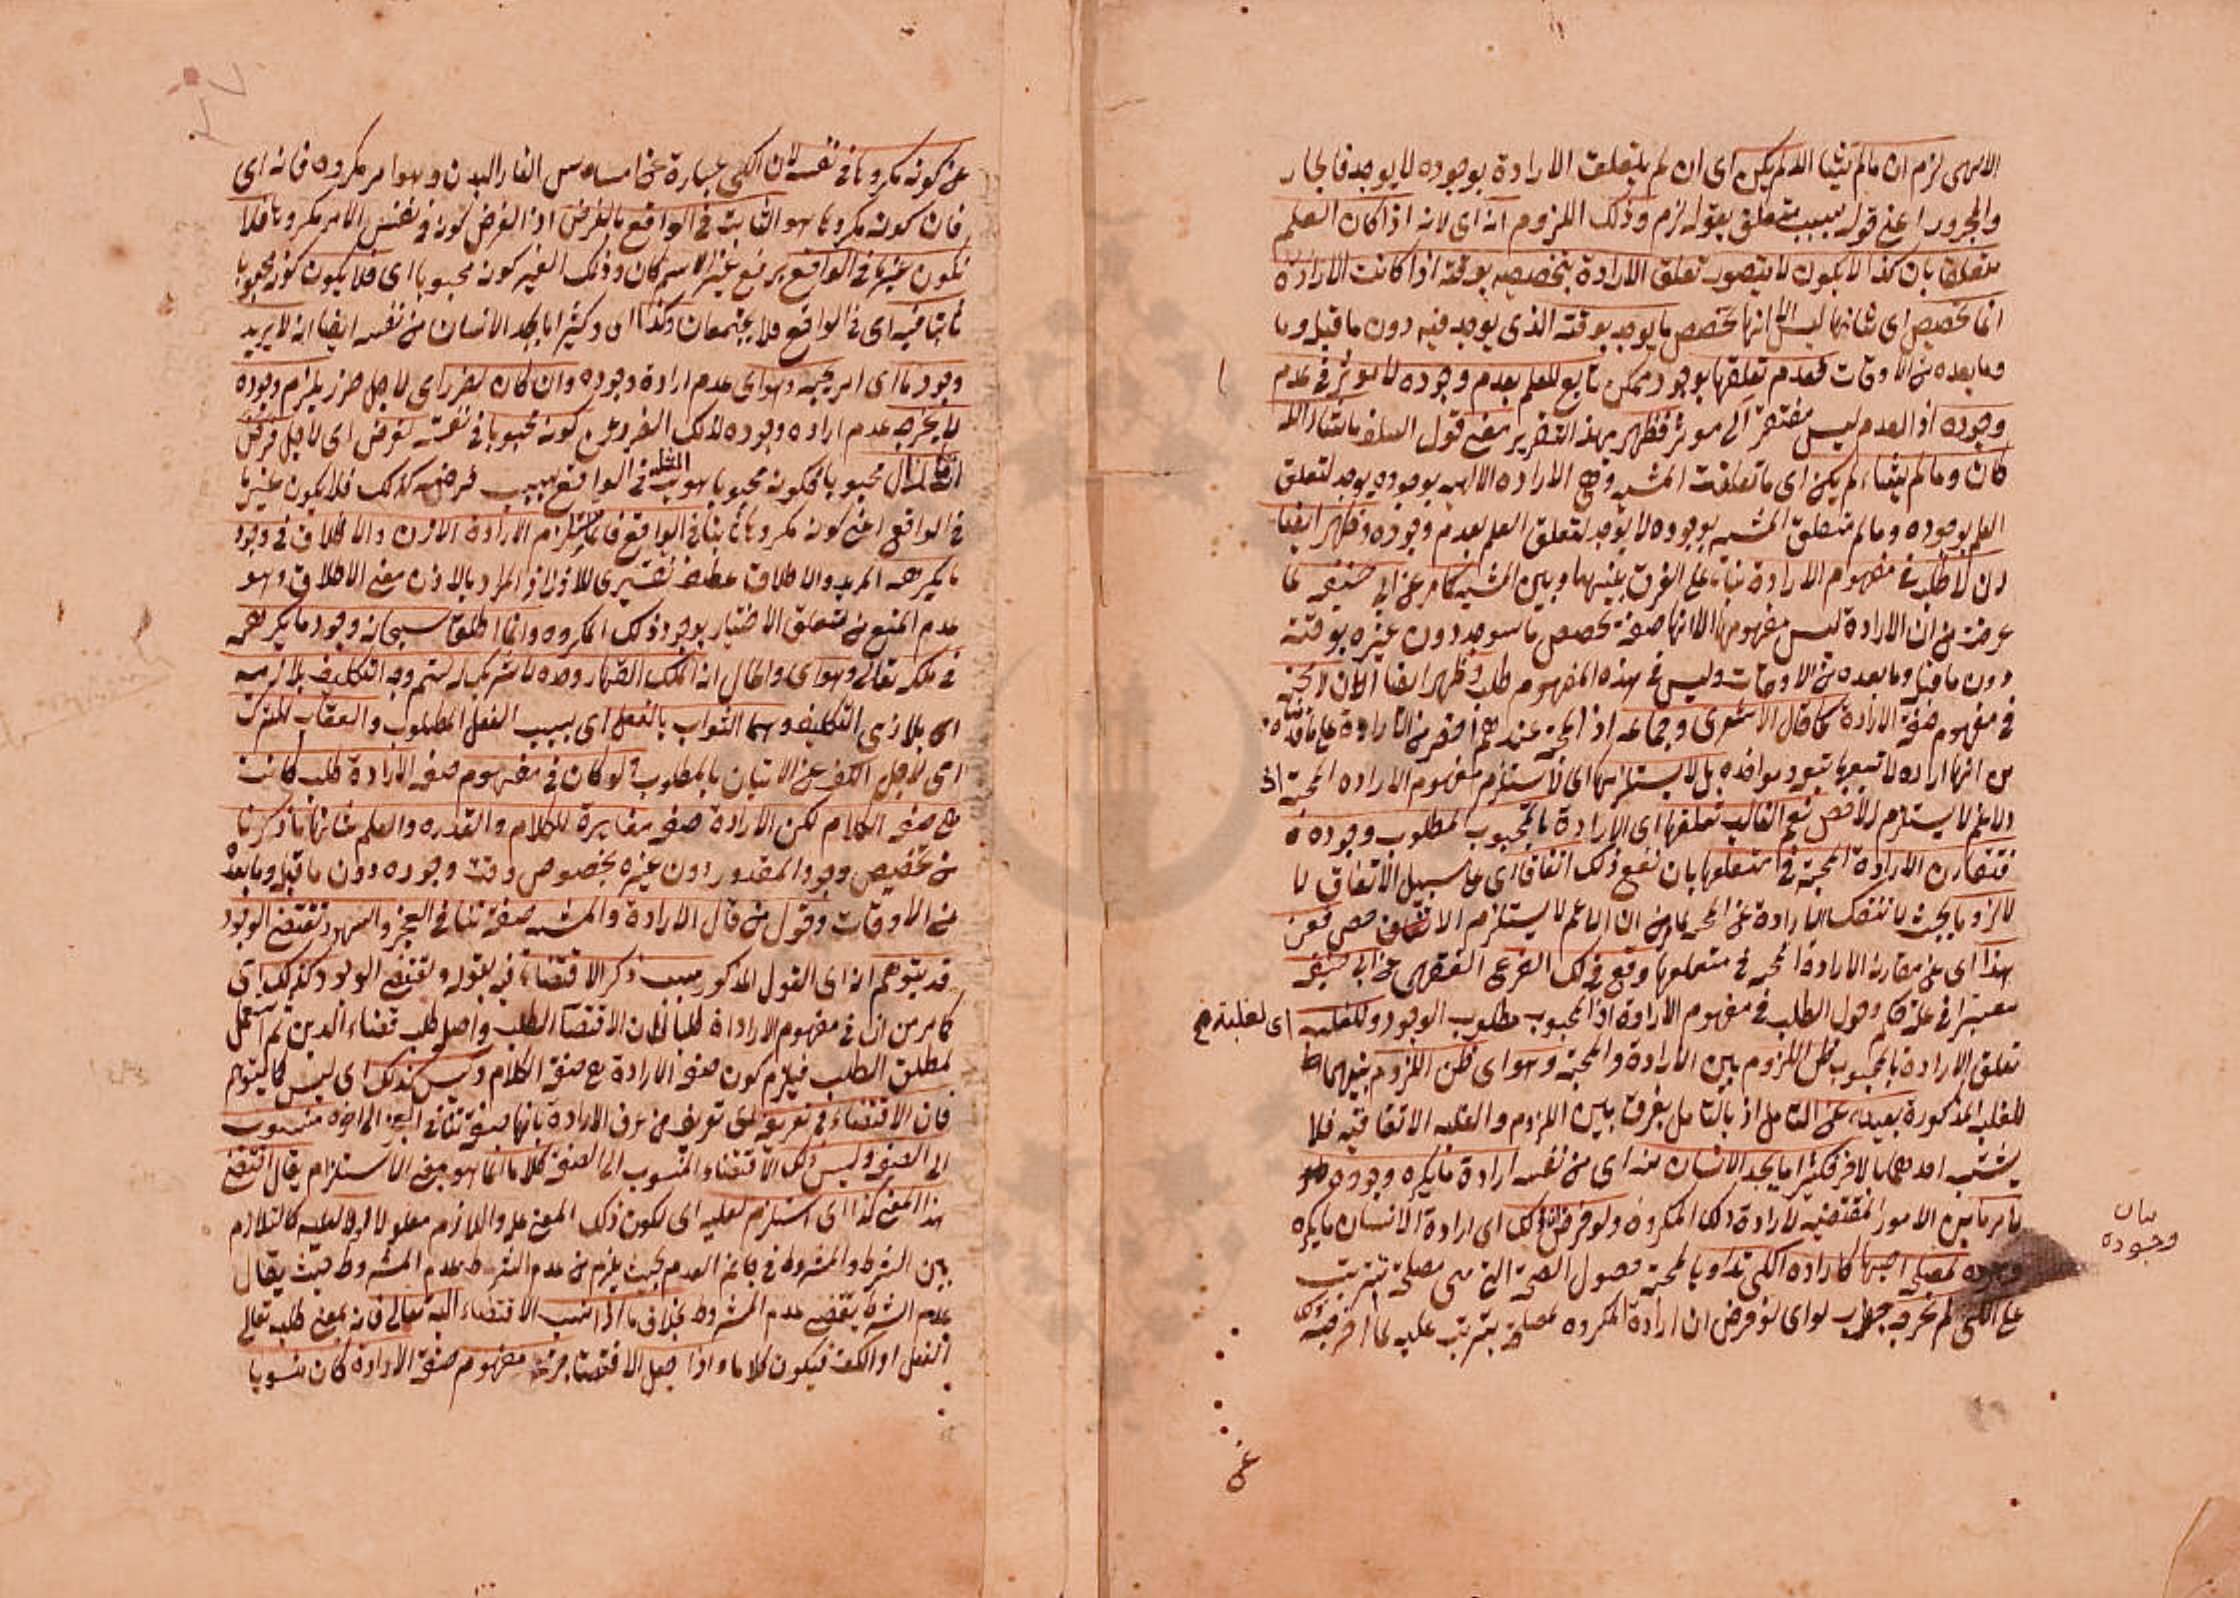 الالهى لزم ان مالم يشا الله لم يكن اى ان لم يتعلق الارادة بوجوده لا يوجد فالجار
والمجرور اعنى قوله بسبب متعلق بقوله لزم وذلك اللزوم انه اى لانه اذا كان العلم
متعلقا بان كذا لا يكون لا يتصور تعلق الارادة بتخصيصه بوقته اذا كانت الارادة
انما تخصص اى شانها ليس الا انها تخصص ما يوجد بوقته الذى يوجد فيه دون ما قبله وما
وما بعده من الاوقات فعدم تعلقها بوجود ممكن تابع للعلم بعدم وجوده لا يؤثر فى عدم
وجوده اذ العدم ليس مفتقرا الى موثر فظهر بهذا التقرير معنى قول السلف ماشاء الله
كان وما لم يشاء لم يكن اى ما تعلقت المشيه وهى الاراده الالهيه بوجوده يوجد لتعلق
العلم بوجوده وما لم تتعلق المشيه بوجوده لا يوجد لتعلق العلم بعدم وجوده وظهر ايضا
ان لا طلب فى مفهوم الارادة بناء على الفرق بينهما وبين المشيه كما مر عن ابى حنيفه لما
عرفت من ان الارادة ليس مفهومها الا انها صفة تخصص ما سيوجد دون غيره بوقته
دون ما قبله وما بعده من الاوقات وليس فى هذه المفهوم طلب وظهر ايضا ان لا محبة
فى مفهوم صفة الارادة كما قال الاشعرى وجماعه اذ المحبة عندهم اخص من الارادة على ما قدمناه
من انها اراده لا تتبعها تبعه ومواخذه بل لا يستلزمها اى لا تستلزم مفهوم الاراده المحبة اذ
الاعم لا يستلزم الاخص نعم الغالب تعلقها اى الارادة بالمحبوب لمطلوب وجوده
فتقارن الارادة المحبة فى متعلقها بان تقع ذلك اتفاقا اى على سبيل الاتفاق لا
لازوما بحيث لا تنفك الارادة عن المحبة لما مر من ان الاعم لا يستلزم الاخص فعن
هذا اى عن مقارنة الارادة المحبة فى متعلقها وقع فى ذلك الفرع الفقهى عن ابى حنيفه
معتبرا فى علة حكمه دخول الطلب فى مفهوم الارادة اذ المحبوب مطلوب الوجود وللغلبه اى لغلبة
تعلق الارادة بالمحبوب ظن اللزوم بين الارادة والمحبة وهو اى ظن اللزوم بينهما
للغلبه المذكورة بعيد عن التامل اذ بالتامل يفرق بين اللزوم والغلبه الاتفاقيه فلا
يشتبه احدهما بالاخر فكثيرا ما يجد الانسان منه اى من نفسه ارادة ما يكره وجوده
لامر ما من الامور المقتضيه لارادة ذلك المكروه ولو فرض ذلك اى ارادة الانسان ما يكره
وجوده لمصلحة احبها كاراده الكى تداويا لمحبة حصول الصحة التى هى مصلحة تترتب
على الكى لم يخرجه جواب لو اى لو فرض ان ارادة المكروه لمصلحة يترتب عليه لما اخرجته
بيان
وجوده
عن
عن كونه مكروها فى نفسه لان الكى عبارة عن امساس النار البدن وهو امر مكروه فانه اى
فان كونه مكروها هو الثابت فى الواقع بالفرض اذ الفرض كونه فى نفس الامر مكروها فلا
يكون غيرها فى الواقع برفع غير الاسم كان وذلك الغير كونه محبوبا اى فلا يكون كونه محبوبا
ثابتا فيه اى فى الواقع فلا يجتمعان وكذا اى وكثيرا ما يجد الانسان من نفسه ايضا انه لا يريد
وجود ما اى امر يحبه وهو اى عدم ارادة وجوده وان كان لضرر اى لاجل ضرر يلزم وجوده
لا يخرجه عدم اراده وجوده لذلك الضرر عن كونه محبوبا فى نفسه لفرض اى لاجل فرض
محبوبا فكونه محبوبا هو الثابت فى الواقع بسبب فرضه كذلك فلا يكون غيرها
فى الواقع اعنى كونه مكروها ثابتا فى الواقع فانما يستلزم الارادة الاذن والاطلاق فى وجود
ما يكرهه المريد والاطلاق عطف تفسيرى للاذن اذ المراد بالاذن معنى الاطلاق وهو
عدم المنع من متعلق الاختيار بوجود ذلك المكروه وانما اطلق سبحانه وجود ما يكرهه
فى ملكه تعالى وهو اى والحال انه الملك القهار وحده لا شريك له ليتم وجه التكليف بلازميه
اى بلازمى التكليف وهما الثواب بالفعل اى بسبب الفعل المطلوب والعقاب للترك
اى لاجل الكف عن الاتيان بالمطلوب لو كان فى مفهوم صفه الارادة طلب كانت
هى صفه الكلام لكن الارادة صفه مغايرة للكلام والقدره والعلم شانها ما ذكرنا
من تخصيص وجود المقدور دون غيره بخصوص وقت وجوده دون ما قبله وما بعده
من الاوقات وقول من قال الارادة والمشيه صفة تنافى العجز والسهو وتقتضى الوجود
قد يتوهم انه اى القول المذكور بسبب ذكر الاقتضاء فيه بقوله وتقتضى الوجود كذلك اى
كما مر من ان فى مفهوم الارادة طلبا لان الاقتضاء الطلب واصله طلب قضاء الدين ثم استعمل
لمطلق الطلب فيلزم كون صفه الارادة هى صفة الكلام وليس كذلك اى ليس كما يتوهم
فان الاقتضاء فى تعريفه اى تعريف من عرف الارادة بانها صفة تنافى العجز الى اخره منسوب
الى الصفه وليس ذلك الاقتضاء المنسوب الى الصفه كلاما انما هو بمعنى الاستلزام يقال اقتضى
هذا المعنى كذا اى استلزم لعليه اى لكون ذلك المعنى علة واللازم معلولا او لا لعليه كالتلازم
بين الشرط والمشروط فى جانب العدم بحيث يلزم من عدم الشرط عدم المشروط حيث يقال
عدم الشرط يقتضى عدم المشروط بخلاف ما اذا نسب الاقتضاء اليه تعالى فانه بمعنى طلبه تعالى
الفعل او الكف فيكون كلاما واذا جعل الاقتضاء جزء مفهوم صفة الارادة كان منسوبا